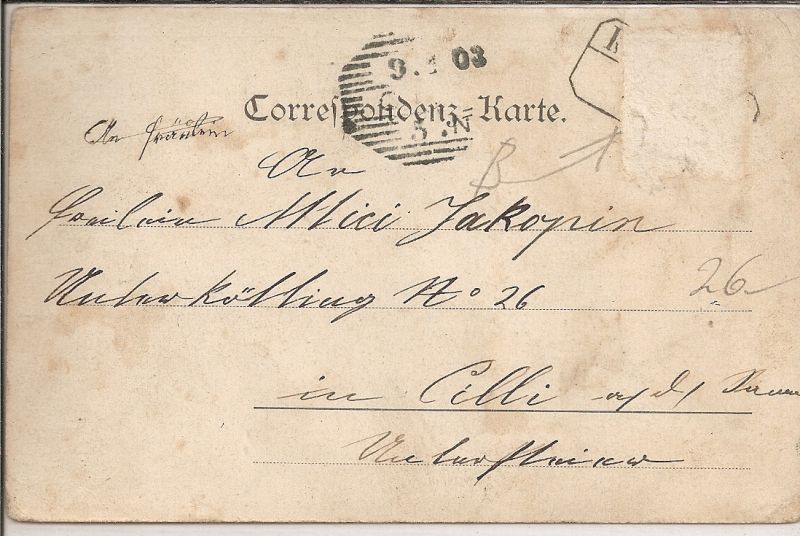 9. 03
Correspondenz-Karte.
5.N
An Fräulein
An
B
Freilein Mici Jakopin
Unterkötting No 26
26
in Cilli a/d/ Sann
Untersteier